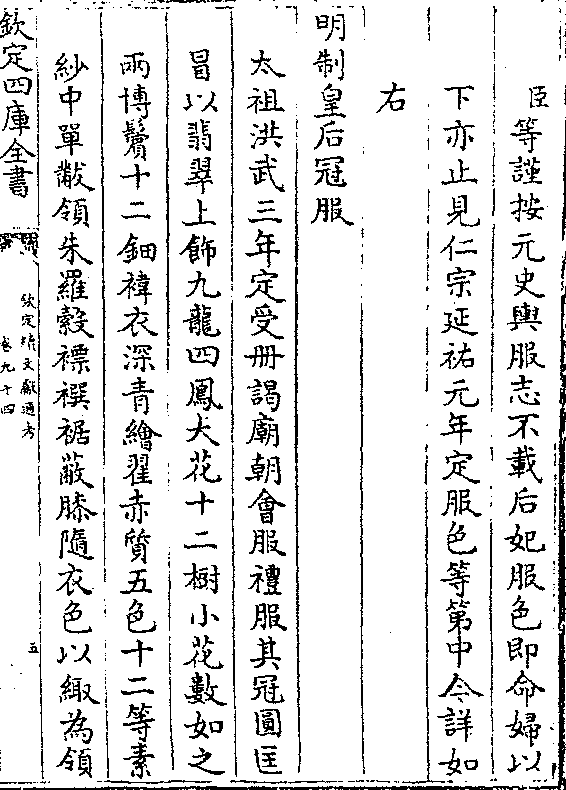 臣等謹按元史輿服志不載后妃服色即命婦以
下亦止見仁宗延祐元年定服色等第中今詳如
右
明制皇后冠服
太祖洪武三年定受冊謁廟朝會服禮服其冠圓匡
冒以翡翠上飾九龍四鳳大花十二樹小花數如之
兩博鬢十二鈿褘衣深青繪翟赤質五色十二等素
紗中單黻領朱羅縠褾襈裾蔽膝隨衣色以緅為領
欽定四庫全書
欽定續文獻通考
卷九十四
五